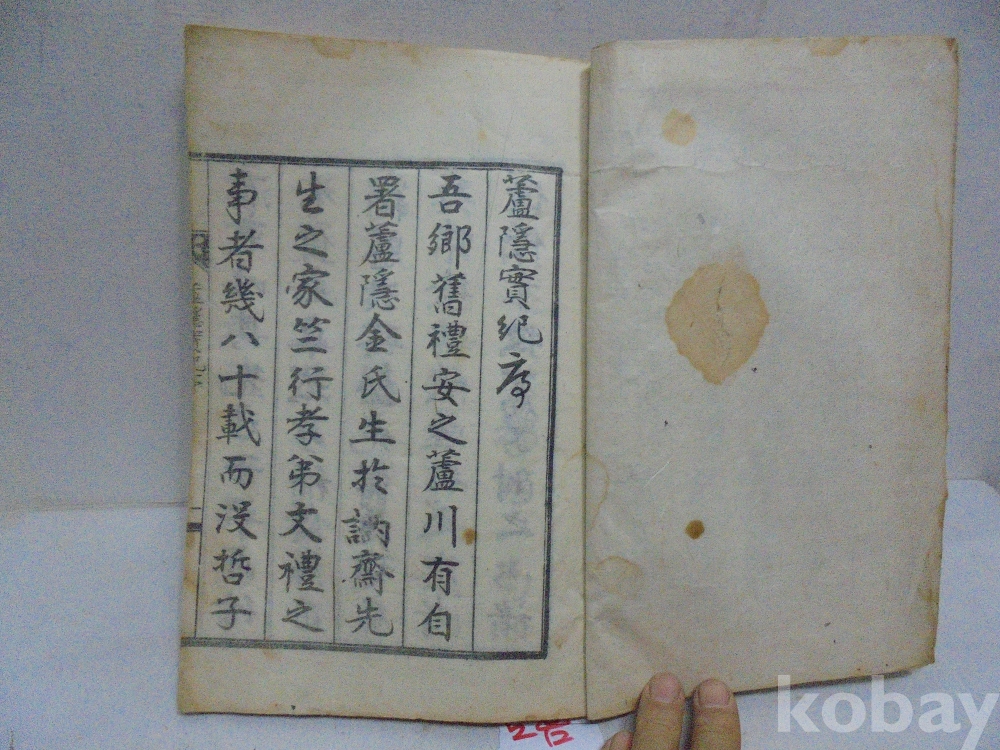 蘆隱實紀序
吾鄉舊禮安之蘆川有自
署蘆隱金氏生於訥齋先
生之家竺行孝弟文禮之
事者幾八十載而沒哲子
kobay